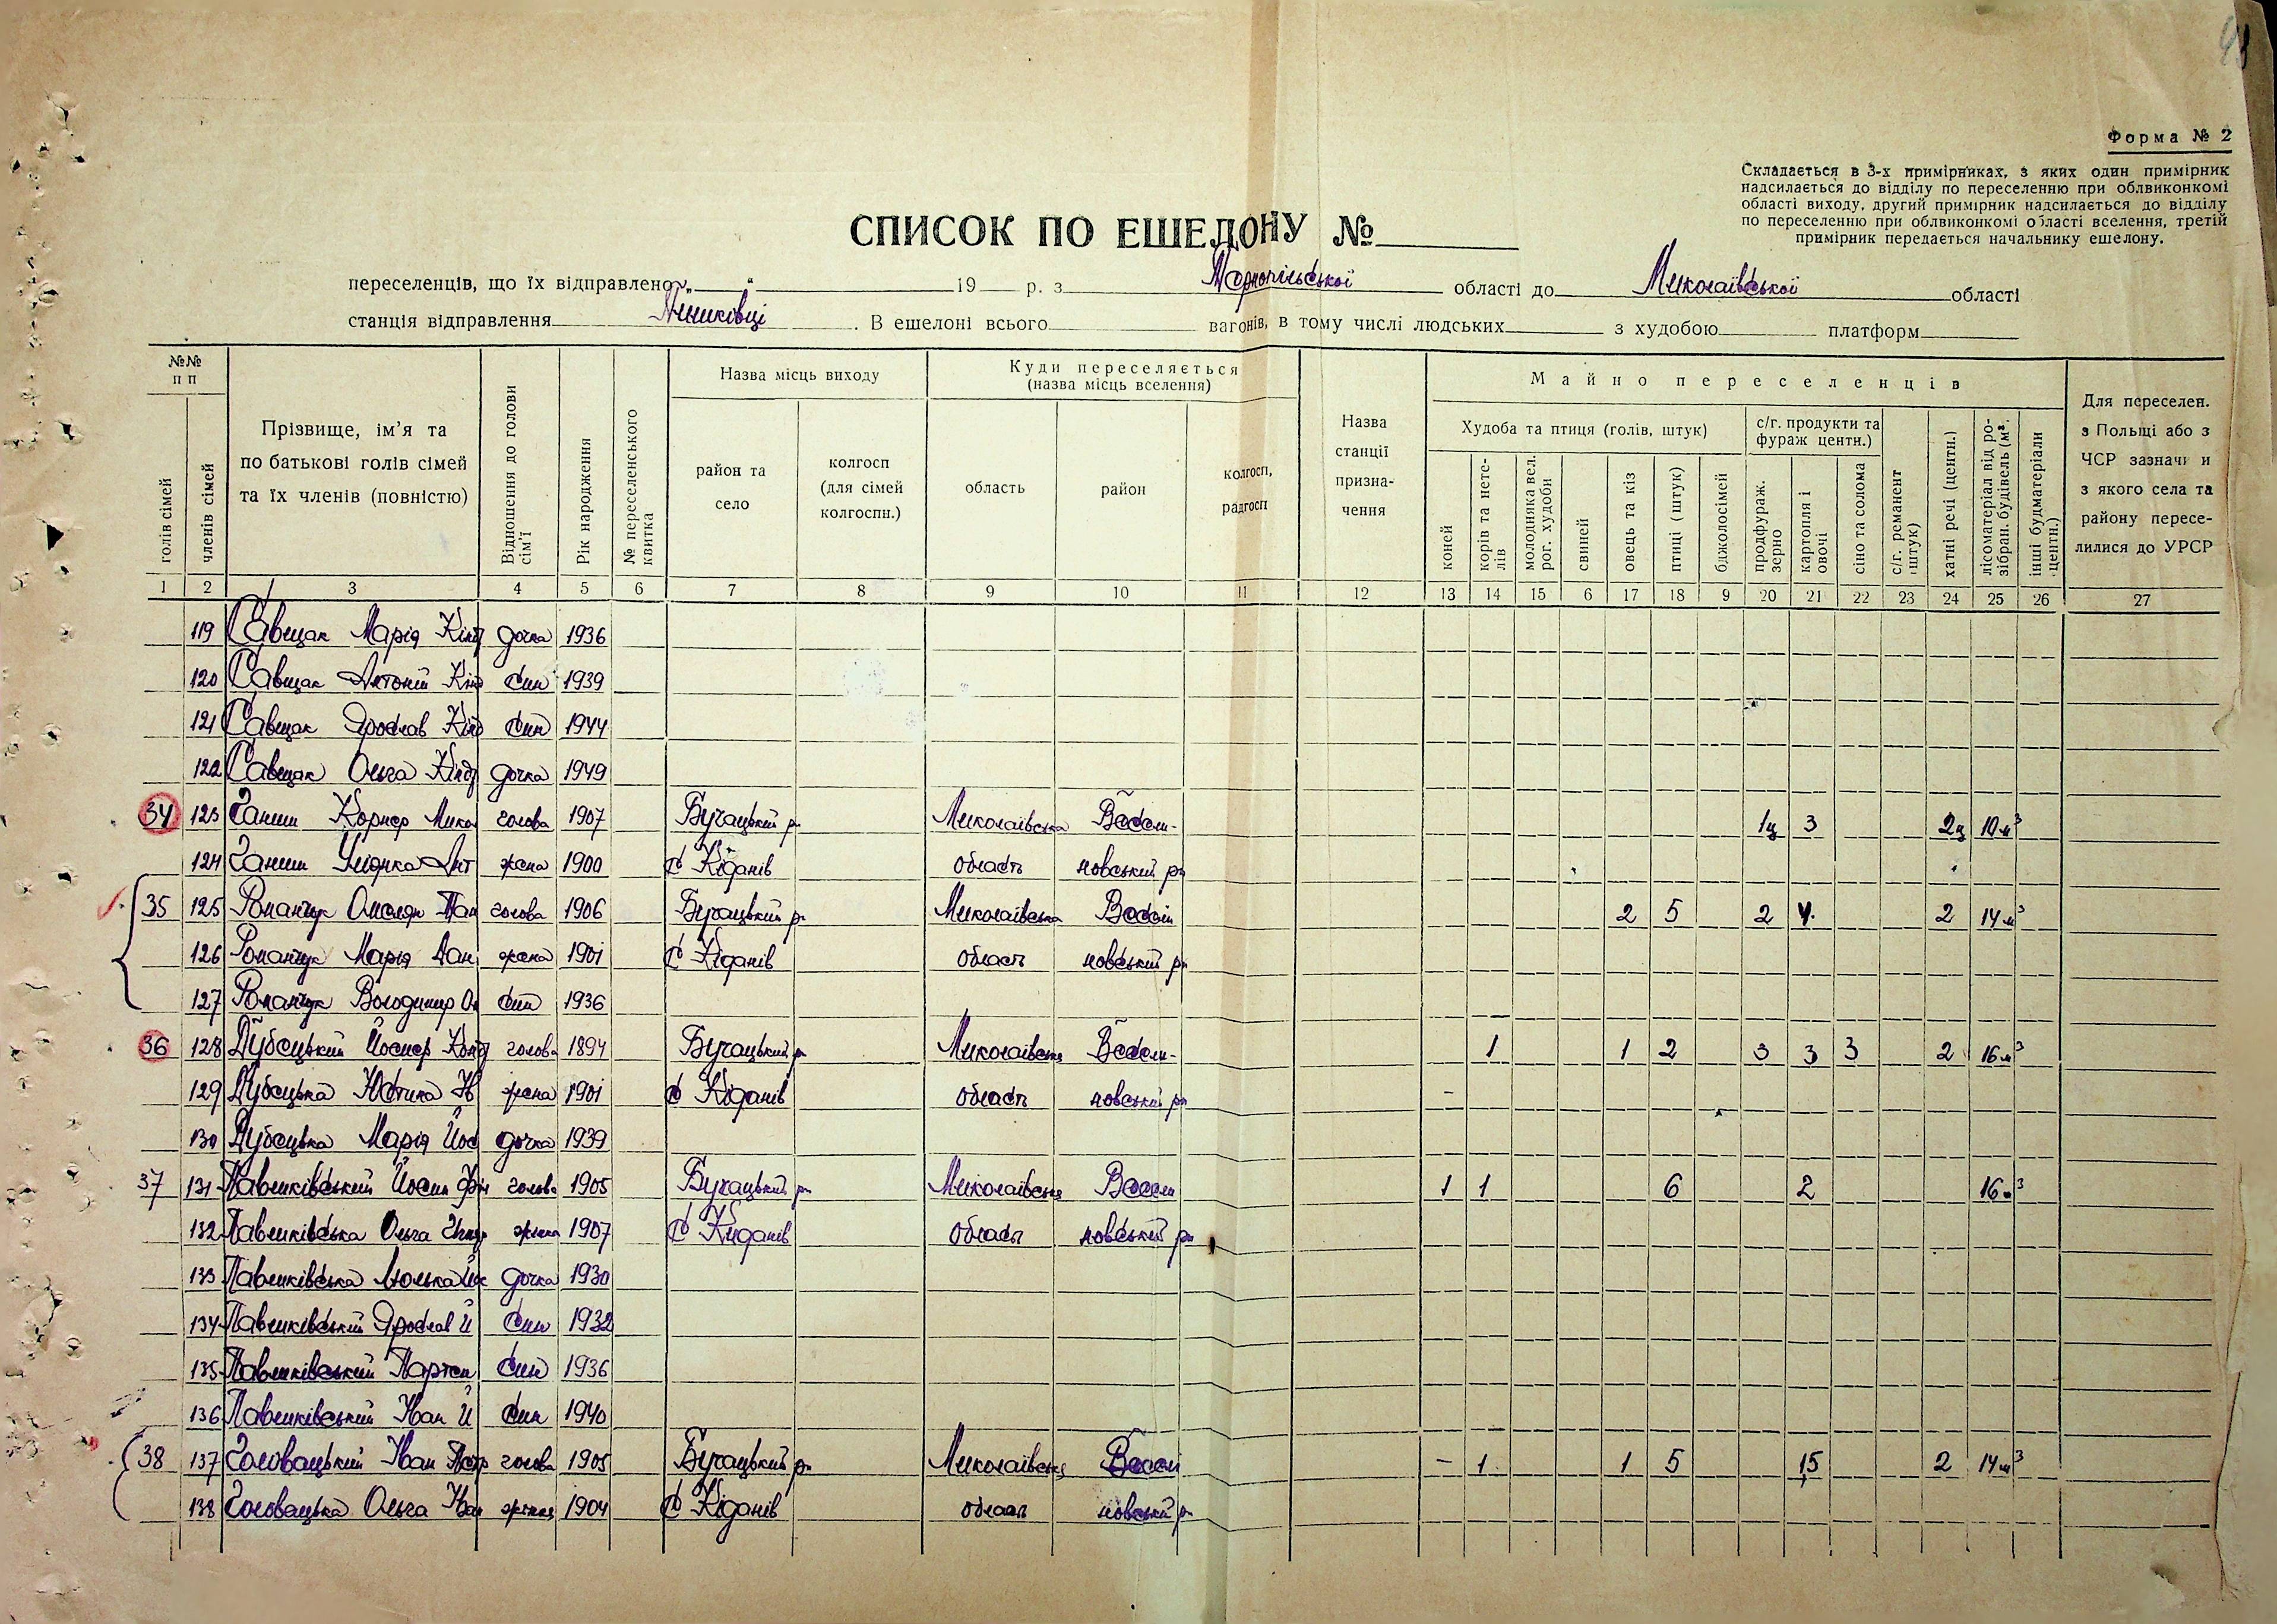 Форма № 2
Складається в 3-х примірниках, з яких один примірник
надсилається до відділу по переселенню при облвиконкомі
області виходу, другий примірник надсилається до відділу
по переселенню при облвиконкомі області вселення, третій
примірник передається начальнику ешелону.
СПИСОК ПО ЕШЕЛОНУ №
переселенців, що їх відправлено „ “ 19 р. з Тернопільської області до Миколаївської області
станція відправлення . В ешелоні всього вагонів, в тому числі людських з худобою платформ
№№ п п
голів сімей
членів сімей
Прізвище, ім’я та по батькові голів сімей та їх членів (повністю)
Відношення до голови сім’ї
Рік народження
№ переселенського квитка
Назва місць виходу
район та село
колгосп (для сімей колгоспн.)
Куди переселяється (назва місць вселення)
область
район
колгосп, радгосп
Назва станції призна-чення
Майно переселенців
Худоба та птиця (голів, штук)
коней
корів та нете-лів
молодняка вел. рог. худоби
свиней
овець та кіз
птиці (штук)
бджолосімей
с/г. продукти та фураж центн.)
продфураж. зерно
картопля і овочі
сіно та солома
с/г. реманент (штук)
хатні речі (центн.)
лісоматеріал від ро-зібран. будівель (м³.
інші будматеріали центн.)
Для переселен. з Польщі або з ЧСР зазначи и з якого села та району пересе-лилися до УРСР
1 2 3 4 5 6 7 8 9 10 11 12 13 14 15 6 17 18 9 20 21 22 23 24 25 26 27
119 Савщак Марія дочка 1936
120 Савщак Антоній син 1939
121 Савщак Ярослав син 1944
122 Савщак Ольга дочка 1949
34 123 Мико голова 1907 Бучацький р. Миколаївська 1ц 3 2ц 10 м³
124 Ант жена 1900 с Кіданів область новський рн
35 125 Романчук Омелян Пан голова 1906 Бучацький р. Миколаївська 2 5 2 4. 2 14 м³
126 Романчук Марія Дан жена 1901 с Кіданів область новський рн
127 Романчук Володимир Ом син 1936
36 128 Дубецький Йосиф голова 1894 Бучацький рн Миколаївська 1 1 2 3 3 3 2 16 м³
129 Дубецька Юстина жена 1901 с Кіданів область новський рн
130 Дубецька Марія Йос дочка 1939
37 131 Павликівський Йосип голова 1905 Бучацький рн Миколаївська 1 1 6 2 16 м³
132 Павликівська Ольга жінка 1907 с Киданів область новський рн
133 Павликівська дочка 1930
134 Павликівський Ярослав Й син 1932
135 Павликівський син 1936
136 Павликівський Іван Й син 1940
38 137 Головацький Іван Петр голова 1905 Бучацький рн Миколаївська - 1 1 5 15 2 14 м³
138 Головацька Ольга Іван жінка 1904 с Кіданів область новський рн